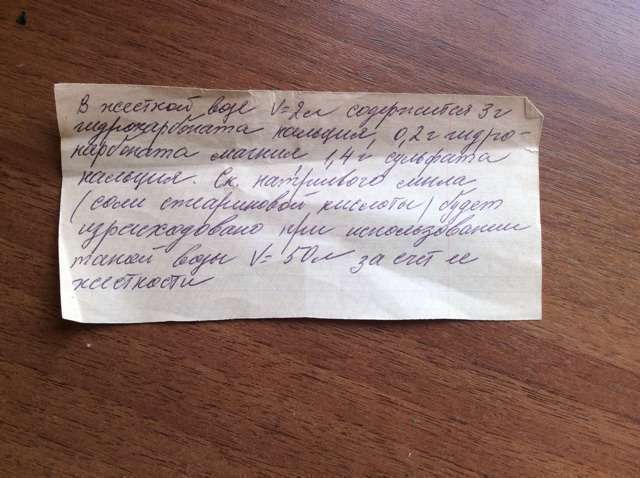 В жесткой воде V=2л содержится 3г
гидрокарбоната кальция, 0,2 г гидро-
карбоната магния, 1,4 г сульфата
кальция. Ск. натриевого мыла
(соли стеариновой кислоты) будет
израсходовано при использовании
такой воды V= 50л за счет ее
жесткости